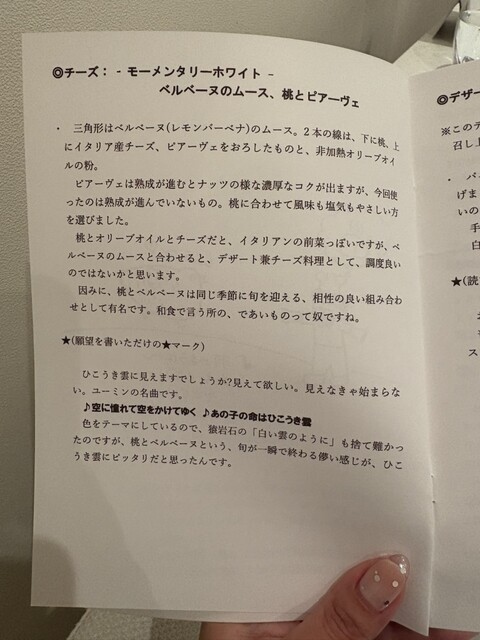 ◎チーズ： - モーメンタリーホワイト –
ベルベーヌのムース、桃とピアーヴェ
・ 三角形はベルベーヌ(レモンバーベナ)のムース。２本の線は、下に桃、上
にイタリア産チーズ、ピアーヴェをおろしたものと、非加熱オリーブオイ
ルの粉。
ピアーヴェは熟成が進むとナッツの様な濃厚なコクが出ますが、今回使
ったのは熟成が進んでいないもの。桃に合わせて風味も塩気もやさしい方
を選びました。
桃とオリーブオイルとチーズだと、イタリアンの前菜っぽいですが、ベ
ルベーヌのムースと合わせると、デザート兼チーズ料理として、調度良い
のではないかと思います。
因みに、桃とベルベーヌは同じ季節に旬を迎える、相性の良い組み合わ
せとして有名です。和食で言う所の、であいものって奴ですね。
★(願望を書いただけの★マーク)
ひこうき雲に見えますでしょうか?見えて欲しい。見えなきゃ始まらな
い。ユーミンの名曲です。
♪空に憧れて空をかけてゆく ♪あの子の命はひこうき雲
色をテーマにしているので、猿岩石の「白い雲のように」も捨て難かっ
たのですが、桃とベルベーヌという、旬が一瞬で終わる儚い感じが、ひこ
うき雲にピッタリだと思ったんです。
◎デザー
※このデ
召し上
・ バ
げま
いの
手
白
★(読
ス